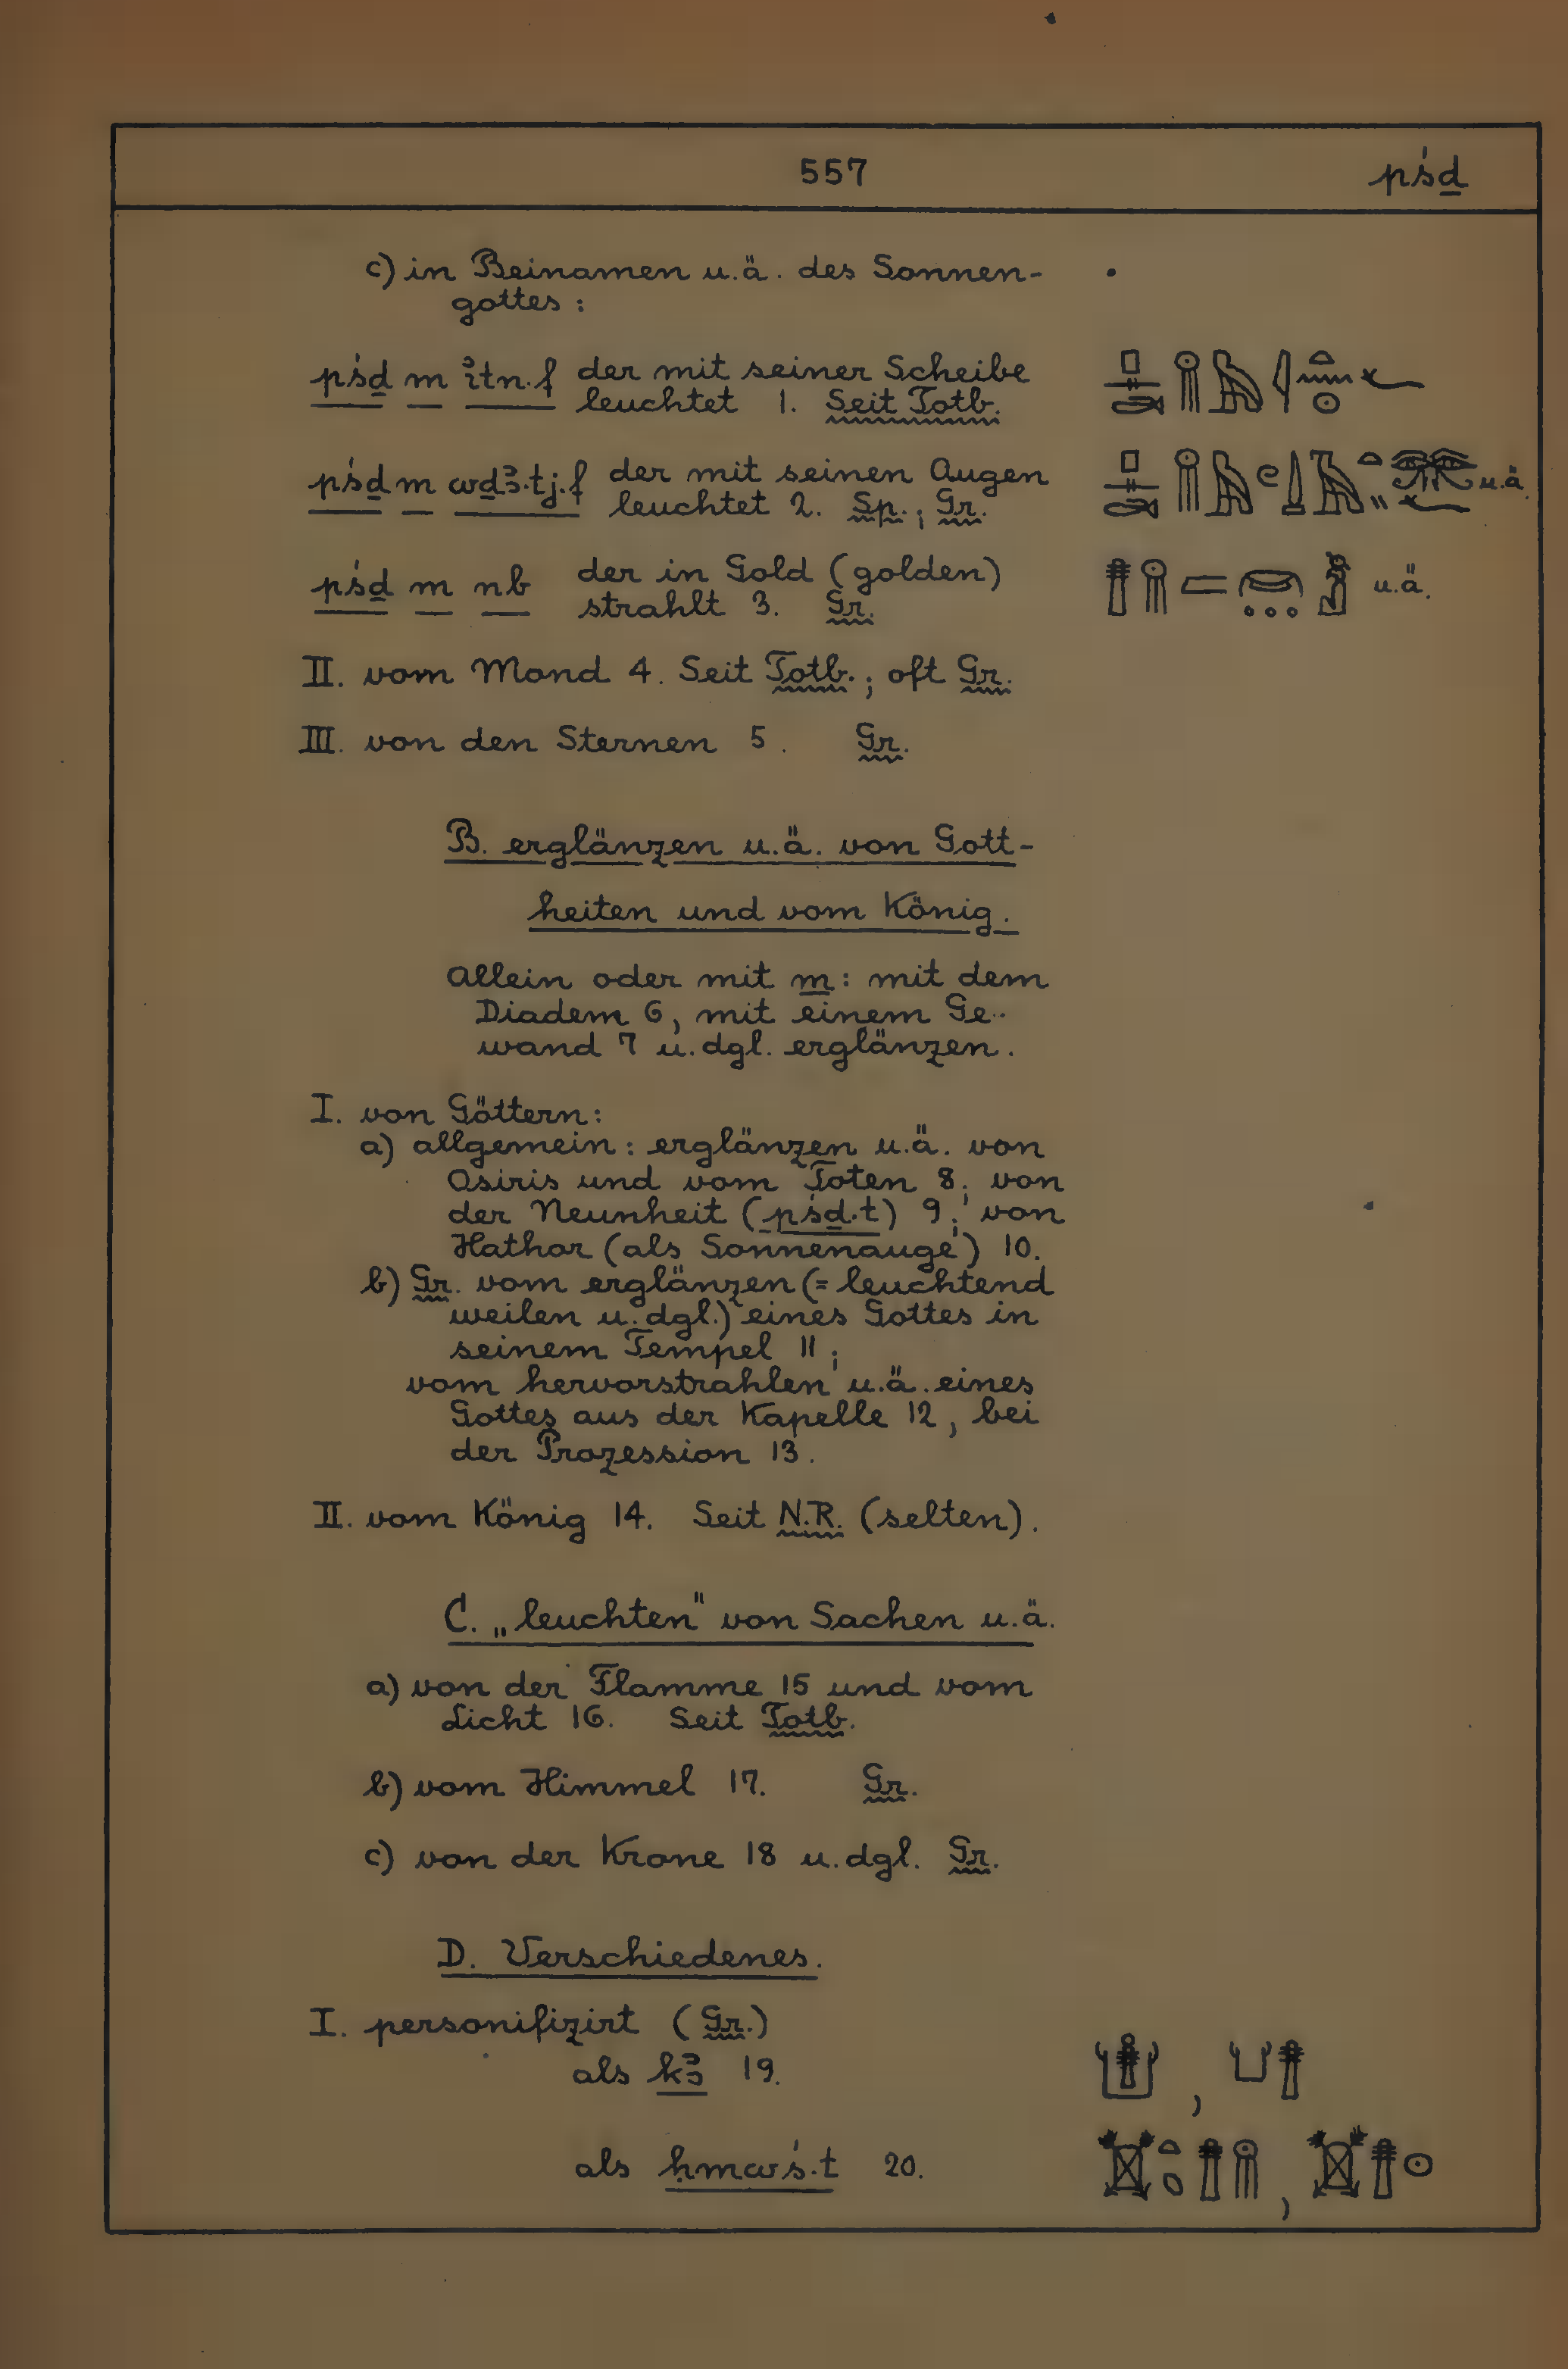 557 pśḏ
c) in Beinamen u.ä. des Sonnen-
gottes:
pśḏ m ỉtn.f der mit seiner Scheibe
leuchtet 1. Seit Totb.
pśḏ m wḏꜣ.tj.f der mit seinen Augen
leuchtet 2. Sp.; Gr. u.ä.
pśḏ m nb der in Gold (golden)
strahlt 3. Gr. u.ä.
II. vom Mond 4. Seit Totb.; oft Gr.
III. von den Sternen 5. Gr.
B. erglänzen u.ä. von Gott-
heiten und vom König.
Allein oder mit m: mit dem
Diadem 6, mit einem Ge-
wand 7 u.dgl. erglänzen.
I. von Göttern:
a) allgemein: erglänzen u.ä. von
Osiris und vom Toten 8; von
der Neunheit (pśḏ.t) 9; von
Hathor (als Sonnenauge) 10.
b) Gr. vom erglänzen (= leuchtend
weilen u.dgl.) eines Gottes in
seinem Tempel 11;
vom hervorstrahlen u.ä. eines
Gottes aus der Kapelle 12, bei
der Prozession 13.
II. vom König 14. Seit N.R. (selten).
C. „leuchten" von Sachen u.ä.
a) von der Flamme 15 und vom
Licht 16. Seit Totb.
b) vom Himmel 17. Gr.
c) von der Krone 18 u.dgl. Gr.
D. Verschiedenes.
I. personifizirt (Gr.)
als kꜣ 19.
als ḥmwś.t 20.